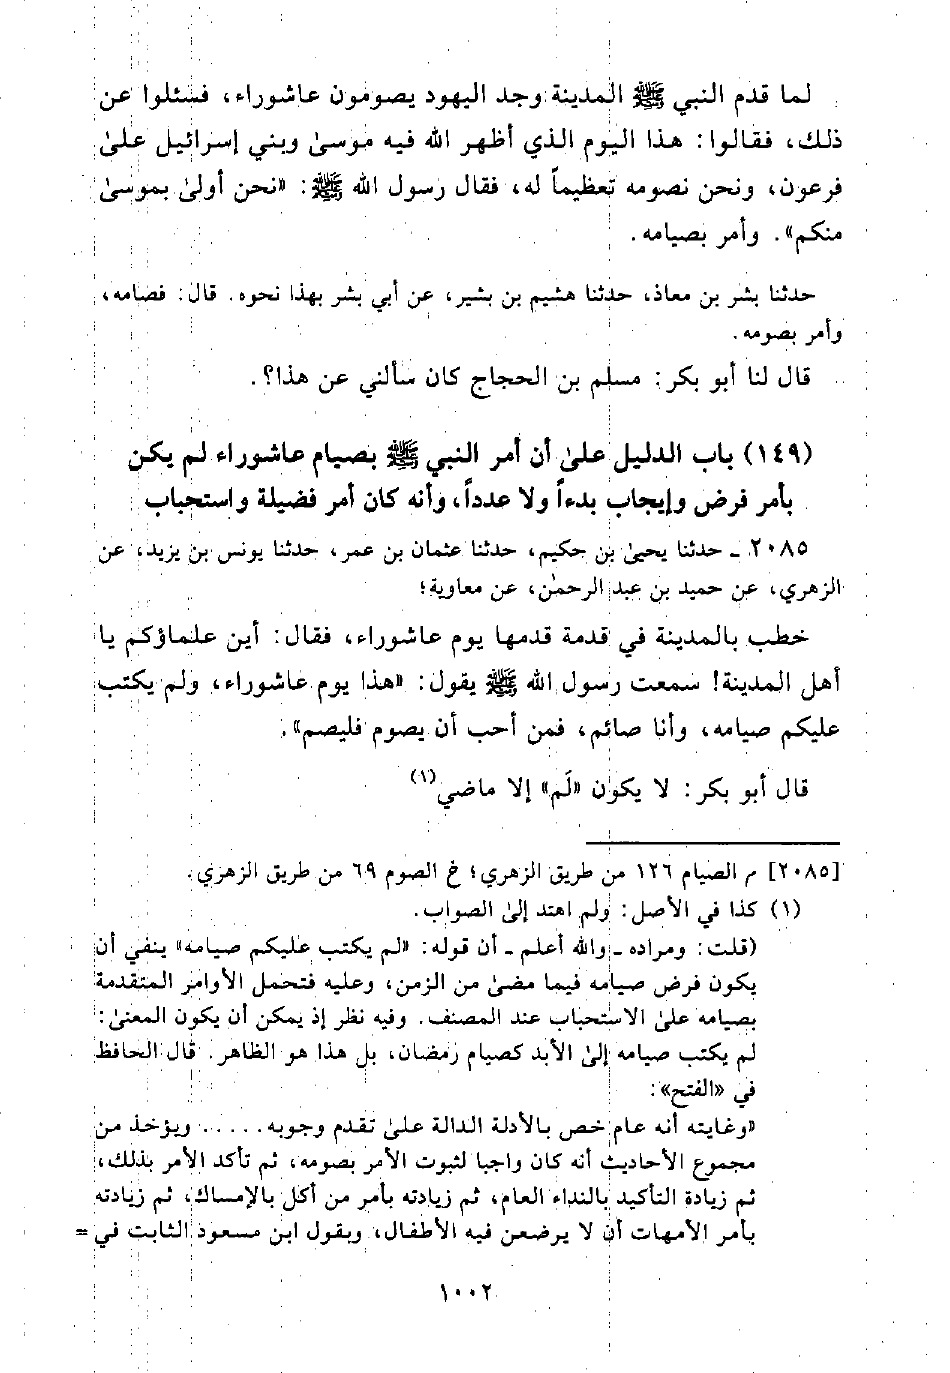 لما قدم النبي ﷺ المدينة وجد اليهود يصومون عاشوراء، فسئلوا عن
ذلك، فقالوا: هذا اليوم الذي أظهر الله فيه موسىٰ وبني إسرائيل علىٰ
فرعون، ونحن نصومه تعظيماً له، فقال رسول الله ﷺ: «نحن أولىٰ بموسىٰ
منكم». وأمر بصيامه.
حدثنا بشر بن معاذ، حدثنا هشيم بن بشير، عن أبي بشر بهذا نحوه. قال: فصامه،
وأمر بصومه.
قال لنا أبو بكر: مسلم بن الحجاج كان سألني عن هذا؟.
(١٤٩) باب الدليل علىٰ أن أمر النبي ﷺ بصيام عاشوراء لم يكن
بأمر فرض وإيجاب بدءاً ولا عدداً، وأنه كان أمر فضيلة واستحباب
٢٠٨٥ ـ حدثنا يحيىٰ بن حكيم، حدثنا عثمان بن عمر، حدثنا يونس بن يزيد، عن
الزهري، عن حميد بن عبد الرحمٰن، عن معاوية؛
خطب بالمدينة في قدمة قدمها يوم عاشوراء، فقال: أين علماؤكم يا
أهل المدينة! سمعت رسول الله ﷺ يقول: «هذا يوم عاشوراء، ولم يكتب
عليكم صيامه، وأنا صائم، فمن أحب أن يصوم فليصم».
قال أبو بكر: لا يكون «لَم» إلا ماضي(١)
[٢٠٨٥] م الصيام ١٢٦ من طريق الزهري؛ خ الصوم ٦٩ من طريق الزهري.
(١) كذا في الأصل: ولم اهتد إلىٰ الصواب.
(قلت: ومراده ـ والله أعلم ـ أن قوله: «لم يكتب عليكم صيامه» ينفي أن
يكون فرض صيامه فيما مضىٰ من الزمن، وعليه فتحمل الأوامر المتقدمة
بصيامه علىٰ الاستحباب عند المصنف. وفيه نظر إذ يمكن أن يكون المعنىٰ:
لم يكتب صيامه إلىٰ الأبد كصيام رمضان، بل هذا هو الظاهر. قال الحافظ
في «الفتح»:
«وغايته أنه عام خص بالأدلة الدالة علىٰ تقدم وجوبه..... ويؤخذ من
مجموع الأحاديث أنه كان واجبا لثبوت الأمر بصومه، ثم تأكد الأمر بذلك،
ثم زيادة التأكيد بالنداء العام، ثم زيادته بأمر من أكل بالإمساك، ثم زيادته
بأمر الأمهات أن لا يرضعن فيه الأطفال، وبقول ابن مسعود الثابت في =
١٠٠٢